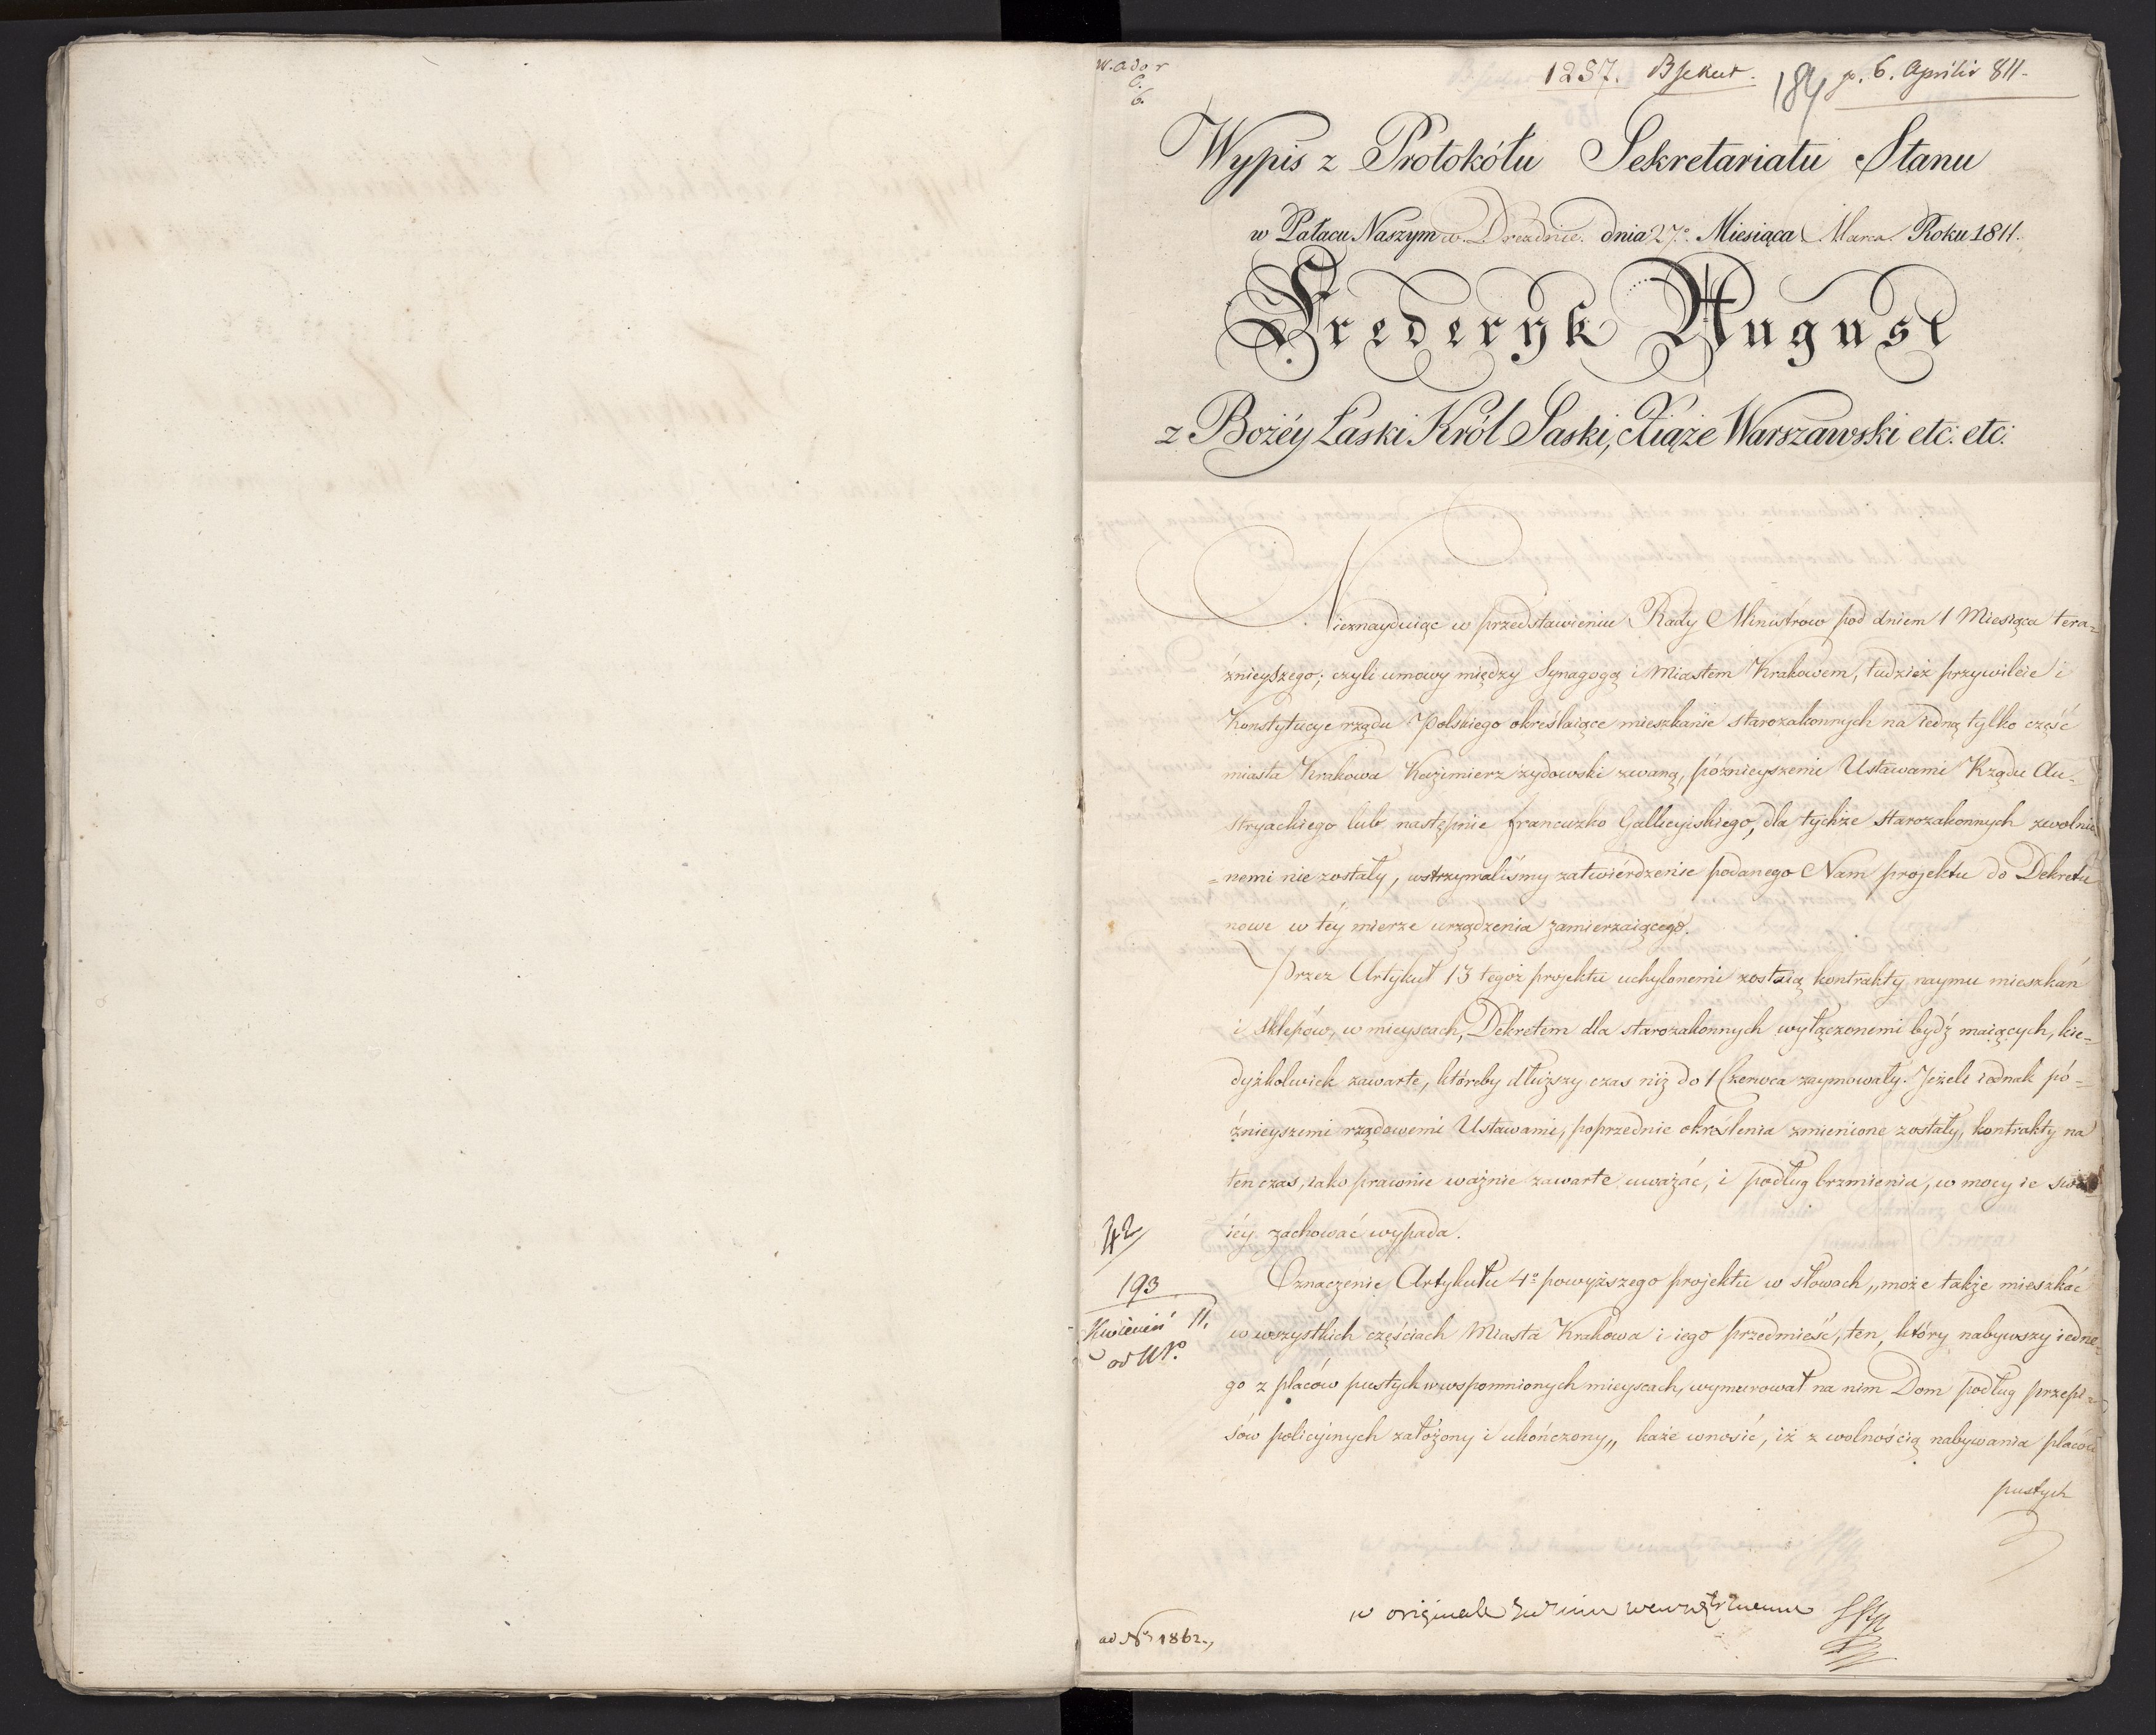 W. ad o r
C.
6.
1257. Bsekut. 184 p. 6. Aprilis 811.
Wypis z Protokółu Sekretariatu Stanu
w Pałacu Naszym w Dreznie. dnia 27.º Miesiąca Marca Roku 1811.
Frederyk August
z Bożéy Łaski Król Saski, Xiąże Warszawski etc: etc:
Nieznayduiąc w przedstawieniu Rady Ministrów pod dniem 1 Miesiąca tera=
źnieyszego; czyli umowy między Synagogą i Miastem Krakowem, tudzież przywileie i
Konstytucye rządu Polskiego określaiące mieszkanie starozakonnych na iedną tylko część
miasta Krakowa Kazimierz żydowski zwaną, póznieyszemi Ustawami Rządu Au=
stryackiego lub następnie francuzko Gallicyiskiego, dla tychże starozakonnych zwolnio
=nemi nie zostały, wstrzymaliśmy zatwiérdzenie podanego Nam projektu do Dekretu
nowe w téy mierze urządzenia zamierzaiącego.
Przez Artykuł 13 tegoż projektu uchylonemi zostaią kontrakty naymu mieszkań
i sklepów, w mieyscach, Dekretem dla starozakonnych wyłączonemi bydź maiących, kie=
dyżkolwiek zawarte, któreby dłuższy czas niż do 1 Czerwca zaymowały. Jeżeli iednak pó=
źnieyszemi rządowemi Ustawami, poprzednie określenia zmienione zostały, kontrakty na
ten czas, iako prawnie ważnie zawarte uważać, i podług brzmienia, w mocy ie swo=
iéy zachować wypada.
42
193
Kwiecień 11.
ad Nº
Oznaczenie Artykułu 4º powyższego projektu w słowach „może także mieszkać
w wszystkich częściach Miasta Krakowa i iego przedmieść, ten, który nabywszy iedne=
go z placów pustych w wspomnionych mieyscach, wymurował na nim Dom podług przepi=
sów policyinych założony i ukończony„ każe wnosić, iż z wolnością nabywania placów
pustych
w originale
ad Nº 1862.,